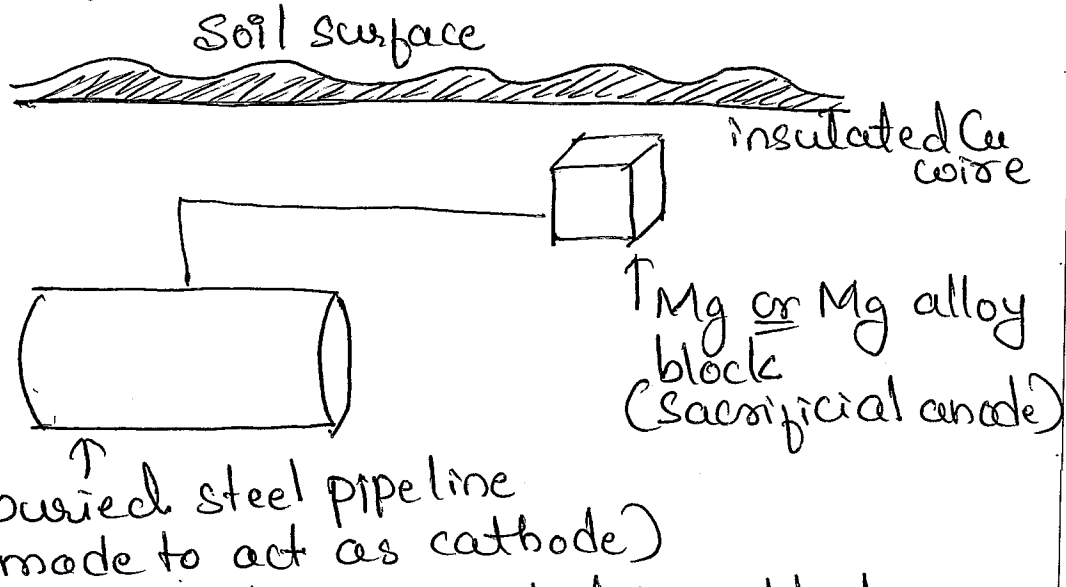 Soil surface
insulated Cu
wire
Mg or Mg alloy
block
(sacrificial anode)
buried steel pipeline
made to act as cathode)